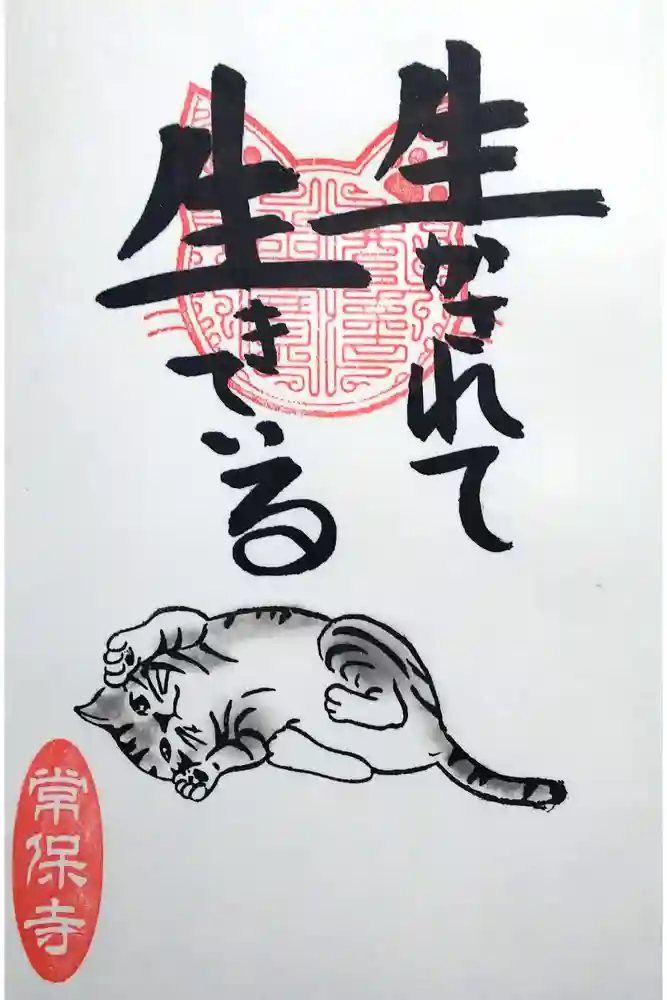 生かされて
生きている
常保寺